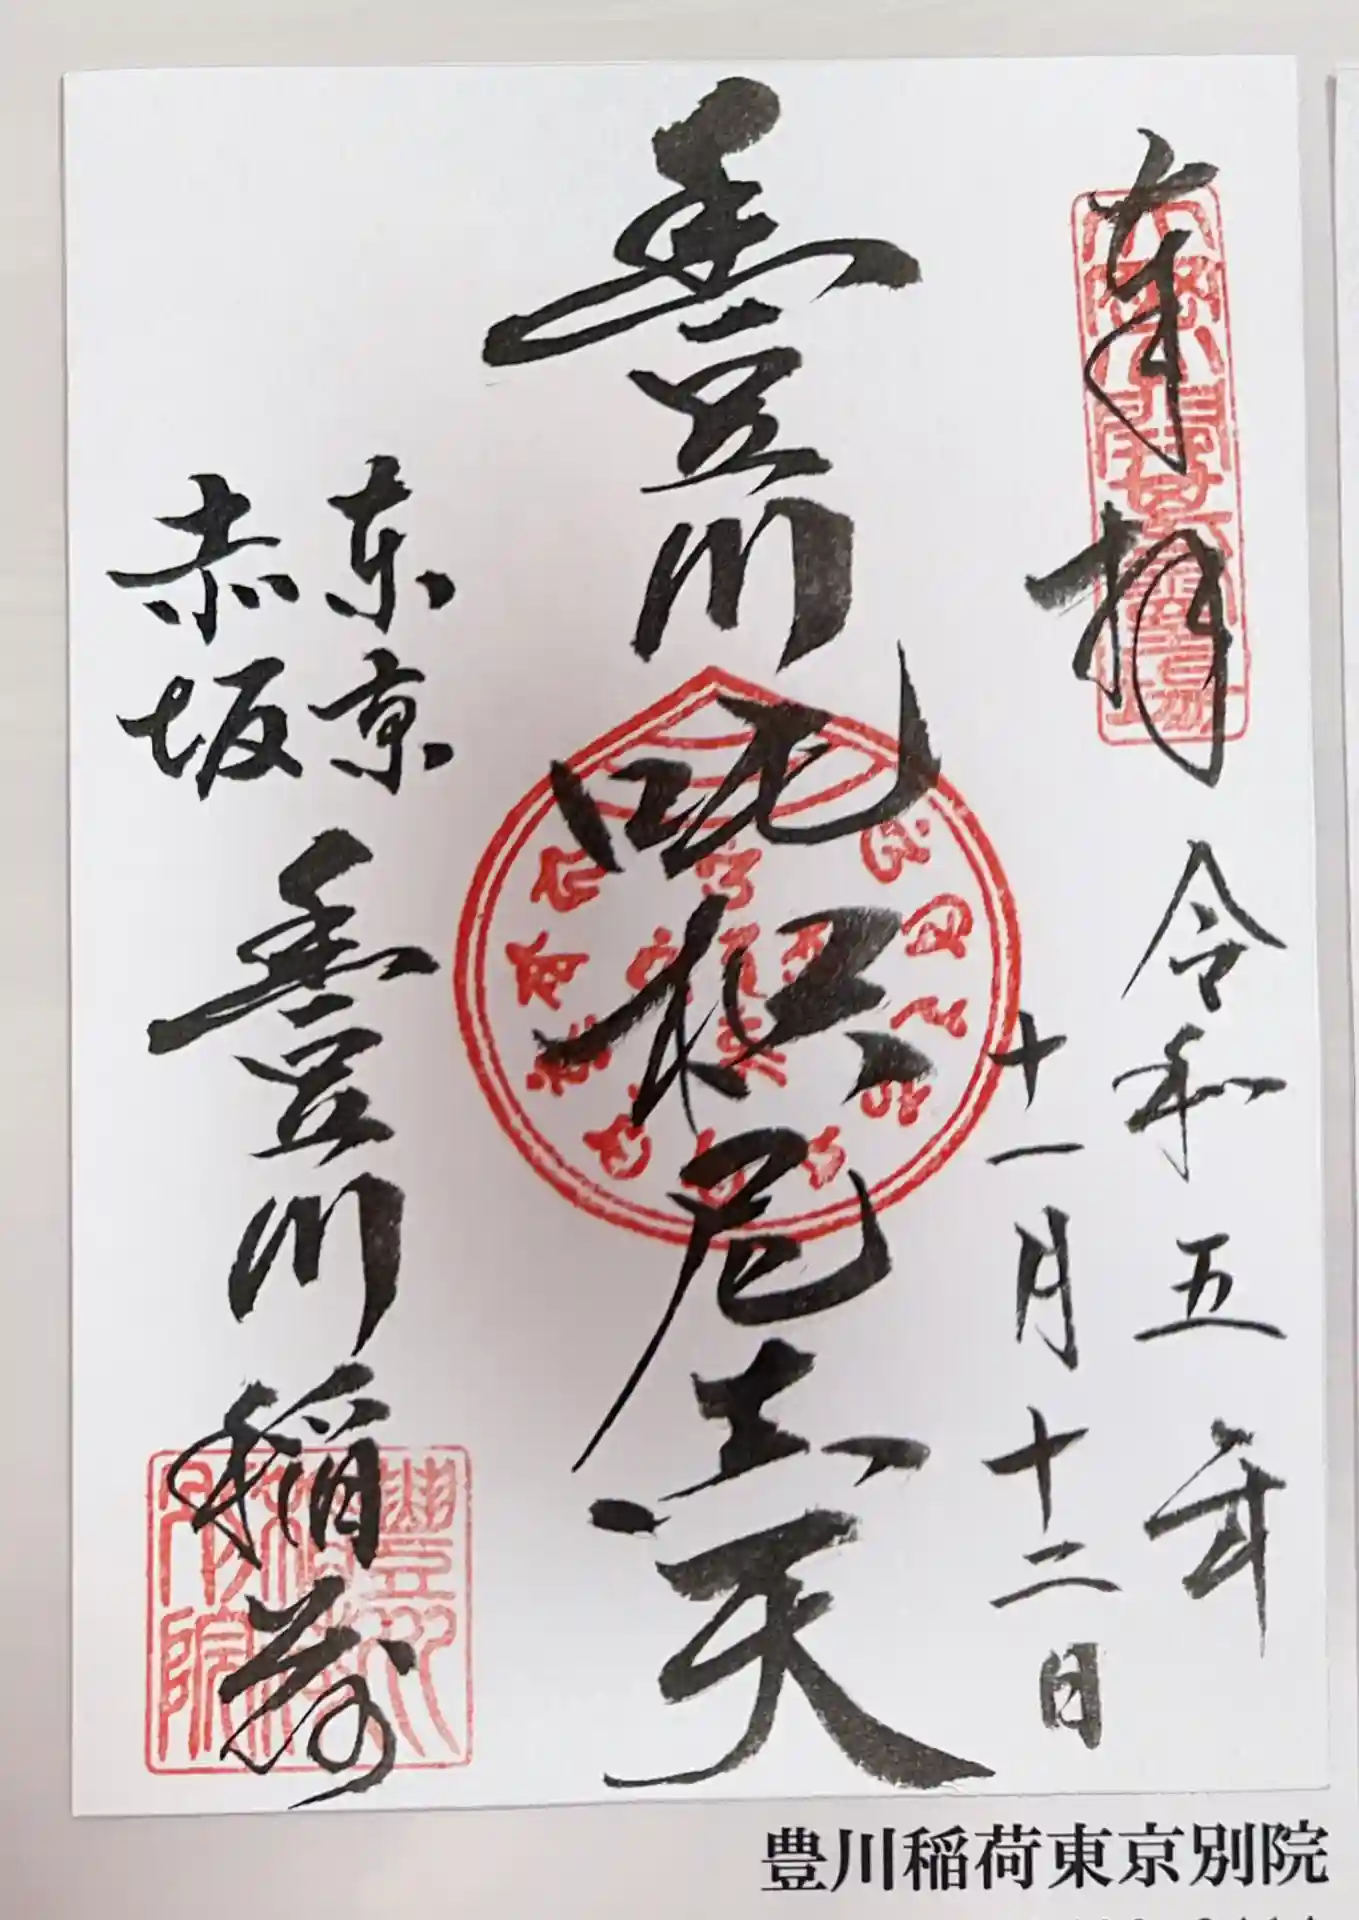 奉拝
令和五年
十一月十二日
豊川吒枳尼真天
東京
赤坂
豊川稲荷
豊川稲荷東京別院